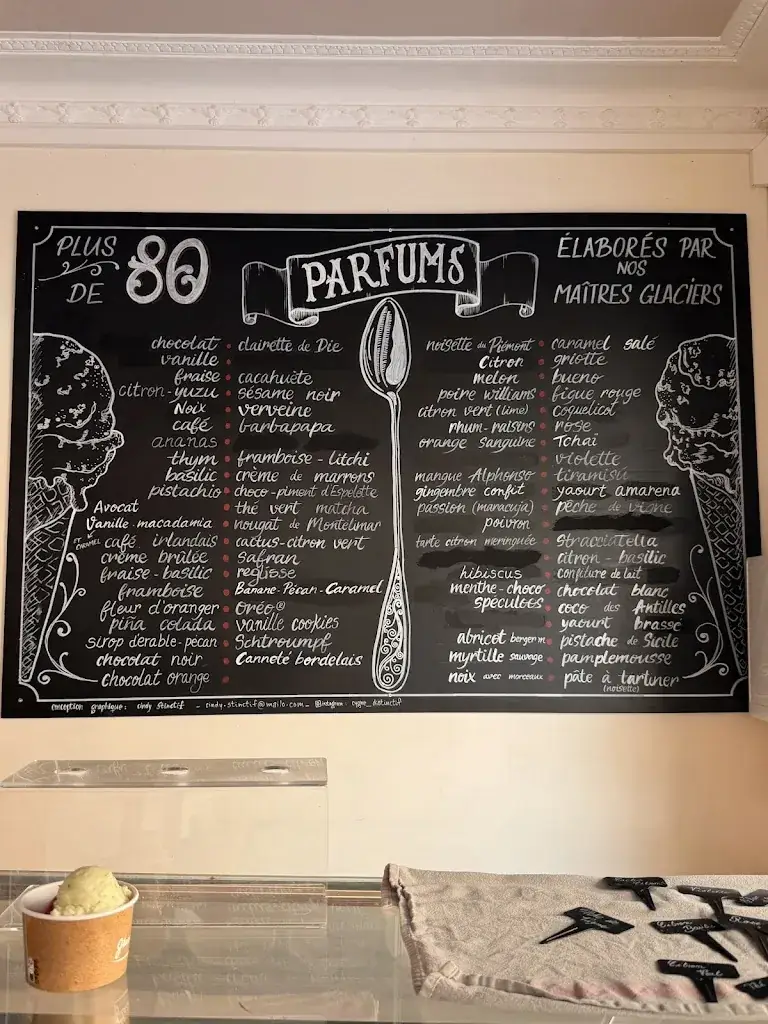 PLUS
DE
80
PARFUMS
ÉLABORÉS PAR
NOS
MAÎTRES GLACIERS
chocolat
vanille
fraise
citron-yuzu
Noix
café
ananas
thym
basilic
pistachio
Avocat
Vanille-macadamia
ET CARAMEL café irlandais
crème brûlée
fraise-basilic
framboise
fleur d'oranger
piña colada
sirop d'érable-pécan
chocolat noir
chocolat orange
clairette de Die
cacahuète
sésame noir
verveine
barbapapa
framboise-litchi
crème de marrons
choco-piment d'Espelette
thé vert matcha
nougat de Montélimar
cactus-citron vert
Safran
réglisse
Banane-Pécan-Caramel
Oréo®
vanille cookies
Schtroumpf
Canneté bordelais
noisette du Piémont
Citron
melon
poire williams
citron vert (lime)
rhum-raisins
orange sanguine
mangue Alphonso
gingembre confit
passion (maracuja)
poivron
tarte citron meringuée
hibiscus
menthe-choco
spéculoos
abricot bergeron
myrtille sauvage
noix avec morceaux
caramel salé
griotte
bueno
figue rouge
coquelicot
rose
Tchaï
violette
tiramisu
yaourt amarena
pêche de vigne
stracciatella
citron-basilic
confiture de lait
chocolat blanc
coco des Antilles
yaourt brassé
pistache de Sicile
pamplemousse
pâte à tartiner
(noisette)
conception graphique: cindy stinctif - cindy.stinctif@mailo.com - instagram: cygne_distinctif